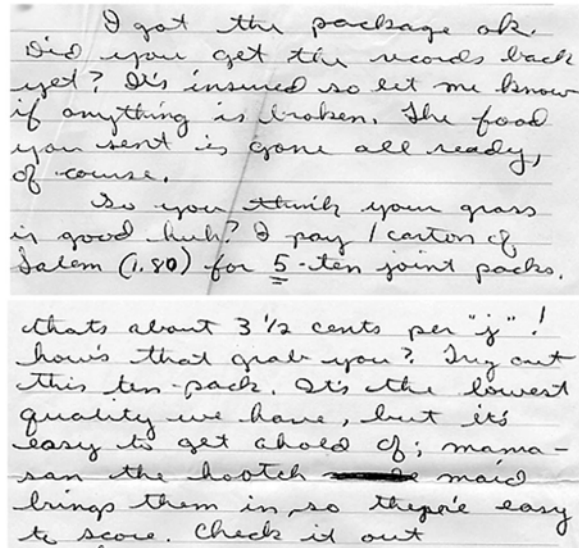 I got the package ok.
Did you get the records back
yet? It's insured so let me know
if anything is broken. The food
you sent is gone all ready,
of course.
So you think your grass
is good huh? I pay 1 carton of
Salem (1.80) for 5-ten joint packs.
thats about 3 1/2 cents per "j"!
how's that grab you? Try out
this ten-pack. It's the lowest
quality we have, but it's
easy to get ahold of; mama-
san the hootch maid
brings them in, so there's easy
to score. Check it out